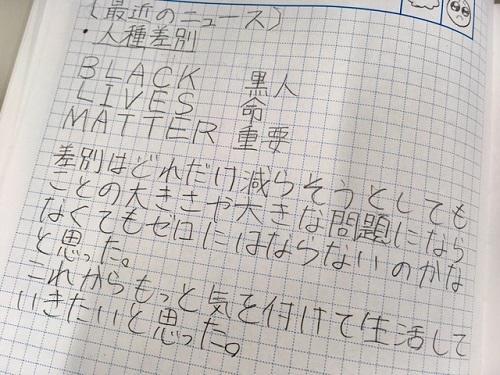 (最近のニュース)
・人種差別
BLACK 黒人
LIVES 命
MATTER 重要
差別はどれだけ減らそうとしても
ことの大きさや大きな問題になら
なくてもゼロにはならないのかな
と思った。
これからもっと気を付けて生活して
いきたいと思った。